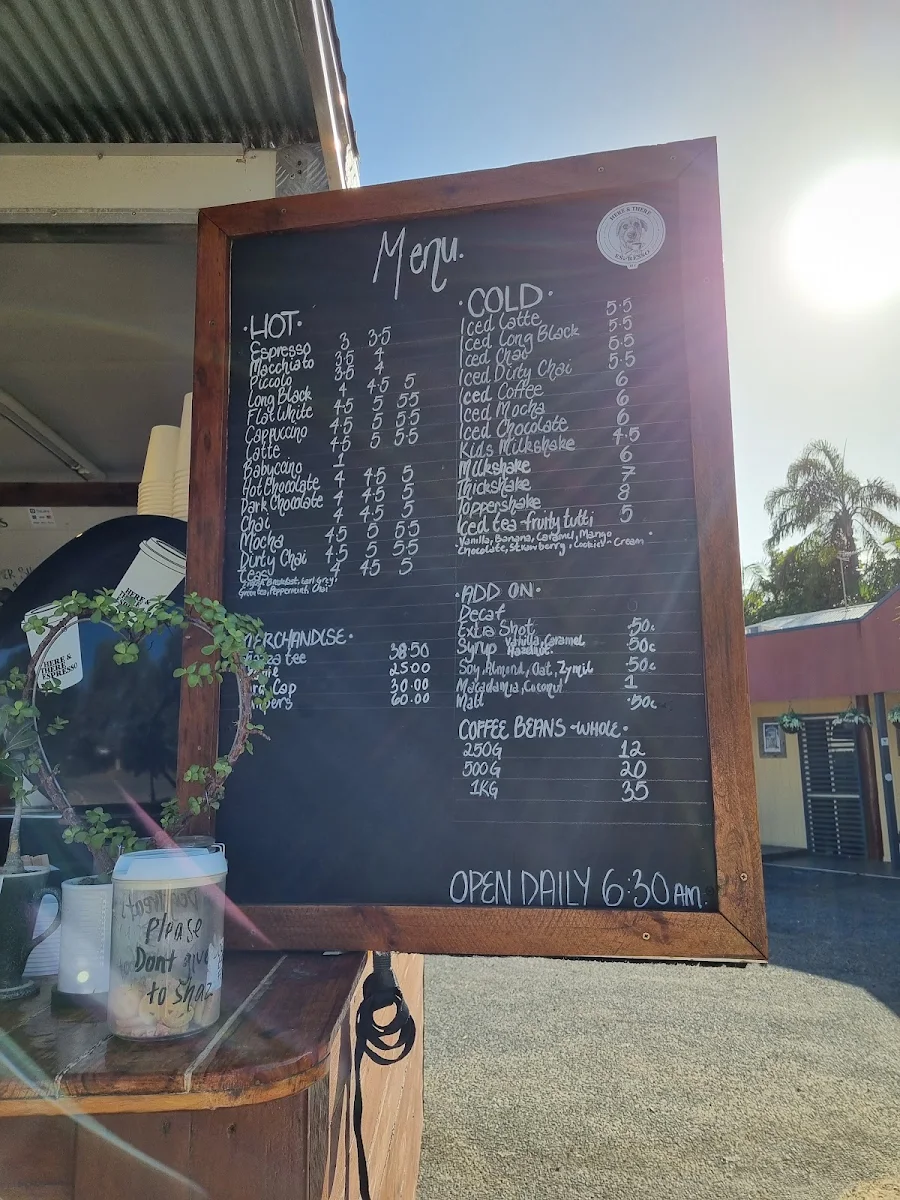 Menu.
HERE & THERE
ESPRESSO
·HOT·
Espresso 3 3.5
Macchiato 3.5 4
Piccolo 3.5 4
Long Black 4 4.5 5
Flat White 4.5 5 5.5
Cappuccino 4.5 5 5.5
Latte 4.5 5 5.5
Babyccino 1
Hot Chocolate 4 4.5 5
Dark Chocolate 4 4.5 5
Chai 4 4.5 5
Mocha 4.5 5 5.5
Dirty Chai 4.5 5 5.5
Teas 4 4.5 5
English Breakfast, Earl Grey,
Green tea, Peppermint, Chai
MERCHANDISE·
tee 38.50
25.00
Cap 30.00
60.00
·COLD·
Iced Latte 5.5
Iced Long Black 5.5
Iced Chai 5.5
Iced Dirty Chai 5.5
Iced Coffee 6
Iced Mocha 6
Iced Chocolate 6
Kids Milkshake 4.5
Milkshake 6
Thickshake 7
Toppershake 8
Iced tea -fruity tutti 5
Vanilla, Banana, Caramel, Mango
Chocolate, Strawberry, Cookies-Cream
·ADD ON·
Decaf
Extra Shot .50c
Syrup Vanilla, Caramel Hazelnut. .50c
Soy, Almond, Oat, Zymil .50c
Macadamia, Coconut 1
Malt .50c
COFFEE BEANS -WHOLE·
250G 12
500G 20
1KG 35
OPEN DAILY 6:30AM.
HERE &
THERE
ESPRESSO
Please
Dont give
to Shaz